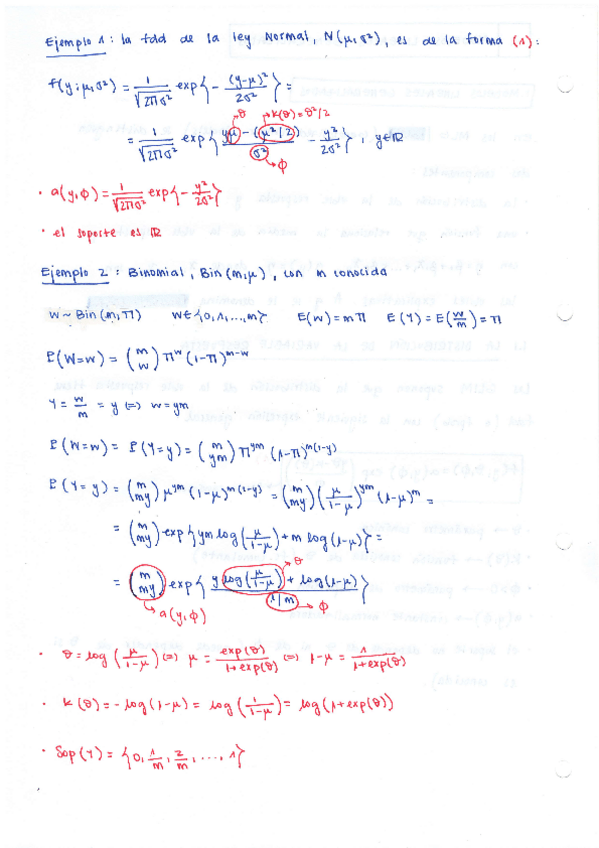 Ejemplo 1 : la fdd de la ley Normal, N(μ,σ²), es de la forma (1) :
f(y;μ,σ²) = 1/√(2πσ²) exp{ - (y-μ)²/2σ² } =
θ → k(θ) = θ²/2
= 1/√(2πσ²) exp{ (yμ - (μ²/2))/σ² - y²/2σ² } , y∈ℝ
→ φ
· a(y,φ) = 1/√(2πσ²) exp{ - y²/2σ² }
· el soporte es ℝ
Ejemplo 2 : Binomial, Bin(m,μ), con m conocida
W ~ Bin(m,π) W∈{0,1,...,m} E(W) = mπ E(Y) = E(W/m) = π
P(W=w) = (m w) π^w (1-π)^(m-w)
Y = W/m = y ⟺ w = ym
P(W=w) = P(Y=y) = (m ym) π^(ym) (1-π)^(m(1-y))
P(Y=y) = (m my) μ^(ym) (1-μ)^(m(1-y)) = (m my) (μ/(1-μ))^(ym) (1-μ)^m =
= (m my) exp{ ym log(μ/(1-μ)) + m log(1-μ) } =
→ θ
= (m my) exp{ (y log(μ/(1-μ)) + log(1-μ))/(1/m) }
→ a(y,φ) → φ
· θ = log(μ/(1-μ)) ⟺ μ = exp(θ)/(1+exp(θ)) ⟺ 1-μ = 1/(1+exp(θ))
· k(θ) = -log(1-μ) = log(1/(1-μ)) = log(1+exp(θ))
· Sop(Y) = {0, 1/m, 2/m, ..., 1}